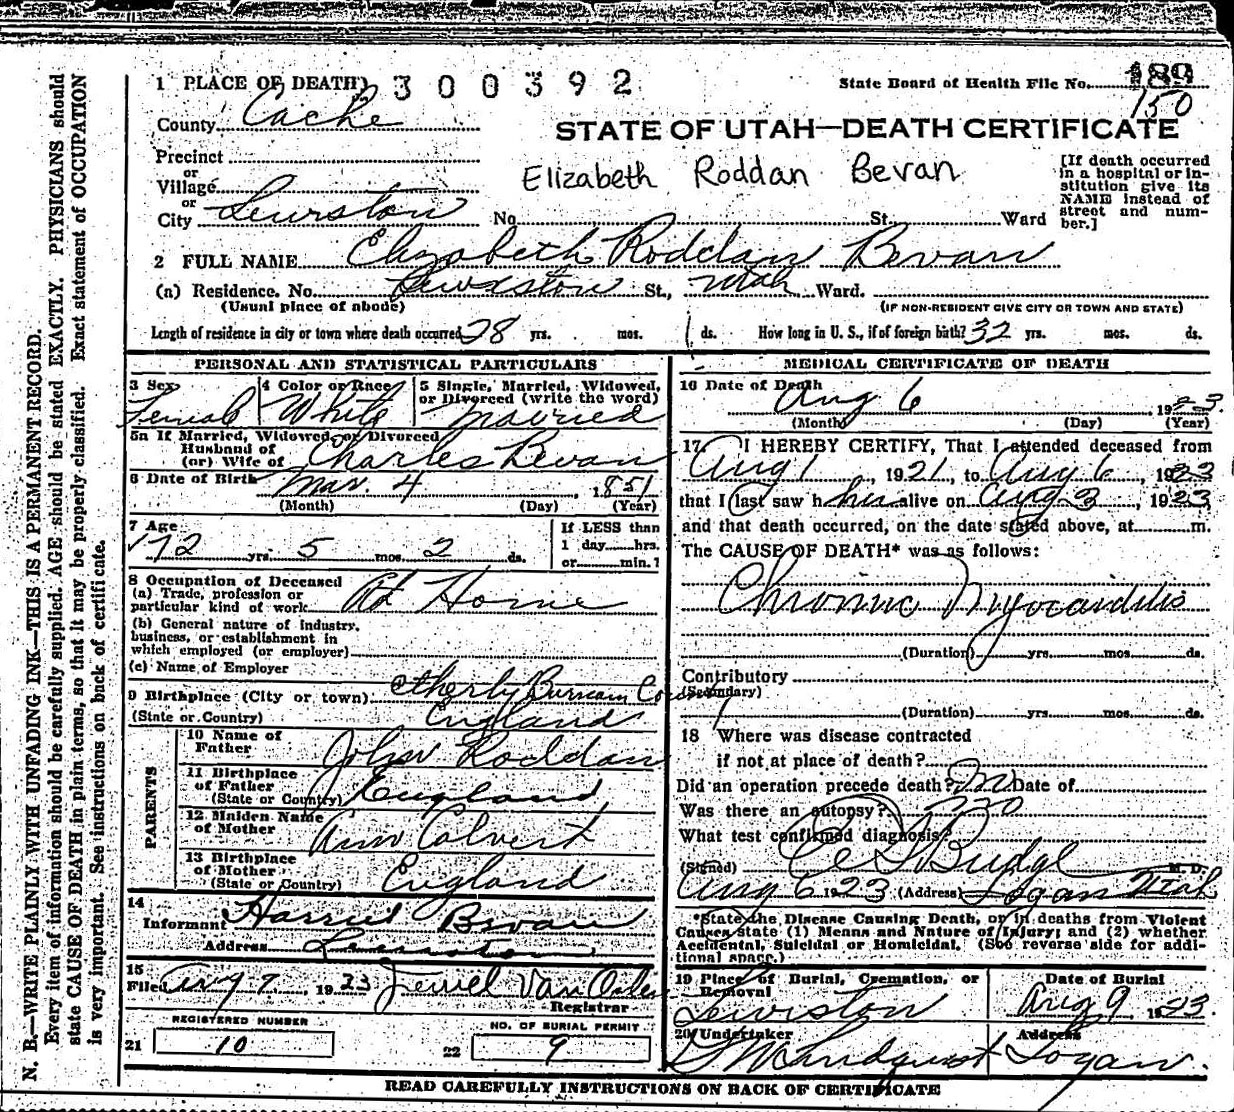 1 PLACE OF DEATH 300392
State Board of Health File No. 189
150
County Cache
STATE OF UTAH—DEATH CERTIFICATE
Precinct
or
Village
or
City Lewiston
Elizabeth Roddan Bevan
No. St. Ward
[If death occurred
in a hospital or in-
stitution give its
NAME instead of
street and num-
ber.]
2 FULL NAME Elizabeth Roddan Bevan
(a) Residence. No. Lewiston St., Utah Ward.
(Usual place of abode)
(IF NON-RESIDENT GIVE CITY OR TOWN AND STATE)
Length of residence in city or town where death occurred 28 yrs. mos. ds. How long in U. S., if of foreign birth? 32 yrs. mos. ds.
PERSONAL AND STATISTICAL PARTICULARS
3 Sex
Female
4 Color or Race
White
5 Single, Married, Widowed,
or Divorced (write the word)
Married
5a If Married, Widowed, or Divorced
Husband of
(or) Wife of Charles Bevan
6 Date of Birth Mar. 4, 1851
(Month) (Day) (Year)
7 Age
72 yrs. 5 mos. 2 ds.
If LESS than
1 day hrs.
or min.?
8 Occupation of Deceased
(a) Trade, profession or
particular kind of work At Home
(b) General nature of industry,
business, or establishment in
which employed (or employer)
(c) Name of Employer
9 Birthplace (City or town) Etherly
(State or Country) England
PARENTS
10 Name of
Father John Roddan
11 Birthplace
of Father
(State or Country) England
12 Maiden Name
of Mother Ann Calvert
13 Birthplace
of Mother
(State or Country) England
14
Informant Bevan
Address Lewiston
15
Filed Aug 7, 1923 Jewel Van Orden
Registrar
REGISTERED NUMBER
21 10
NO. OF BURIAL PERMIT
22 9
MEDICAL CERTIFICATE OF DEATH
16 Date of Death
Aug 6 1923.
(Month) (Day) (Year)
17 I HEREBY CERTIFY, That I attended deceased from
Aug 1, 1921, to Aug 6, 1923
that I last saw h her alive on Aug 3, 1923,
and that death occurred, on the date stated above, at m.
The CAUSE OF DEATH* was as follows:
Chronic Myocarditis
(Duration) yrs. mos. ds.
Contributory
(Secondary)
(Duration) yrs. mos. ds.
18 Where was disease contracted
if not at place of death?
Did an operation precede death? no Date of
Was there an autopsy? no
What test confirmed diagnosis?
(Signed) Budge M. D.
Aug 6 1923 (Address) Logan Utah
*State the Disease Causing Death, or in deaths from Violent
Causes state (1) Means and Nature of Injury; and (2) whether
Accidental, Suicidal or Homicidal. (See reverse side for addi-
tional space.)
19 Place of Burial, Cremation, or
Removal
Lewiston
Date of Burial
Aug 9 1923.
20 Undertaker
Lindquist
Address
Logan.
READ CAREFULLY INSTRUCTIONS ON BACK OF CERTIFICATE
N. B.—WRITE PLAINLY WITH UNFADING INK—THIS IS A PERMANENT RECORD.
Every item of information should be carefully supplied. AGE should be stated EXACTLY. PHYSICIANS should
state CAUSE OF DEATH in plain terms, so that it may be properly classified. Exact statement of OCCUPATION
is very important. See instructions on back of certificate.